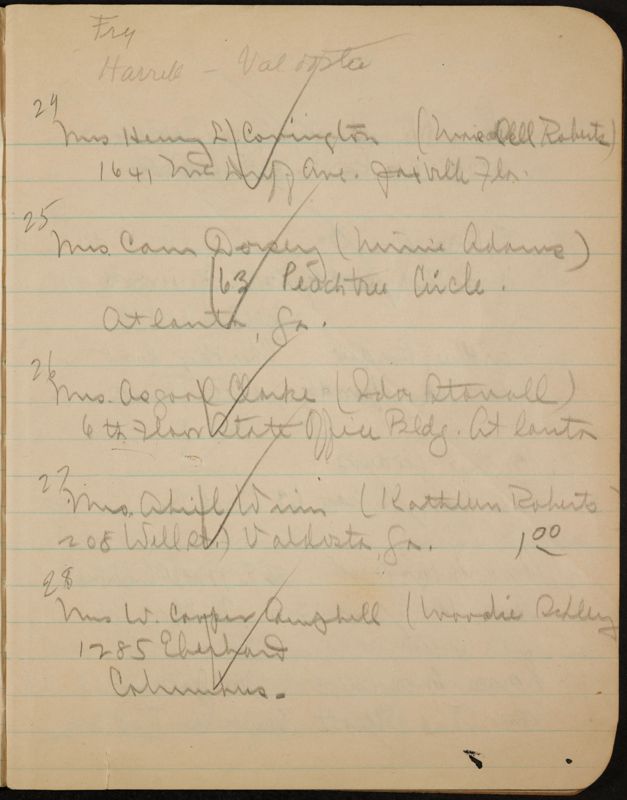 Fry
Harrell - Valdosta
24
Mrs Henry L Covington ( Dell Roberts)
1641 Ave. Jaxville Fla.
25
Mrs. Cam Dorsey (Minnie Adams)
63 Peachtree Circle.
Atlanta, Ga.
26
Mrs. Clarke (Ida Stovall)
6th Floor State Office Bldg. Atlanta
27
Mrs. Winn (Kathleen Roberts
208 Wells St.) Valdosta, Ga. 1 00
28
Mrs W. Cooper Campbell (
1285 Eberhard
Columbus.